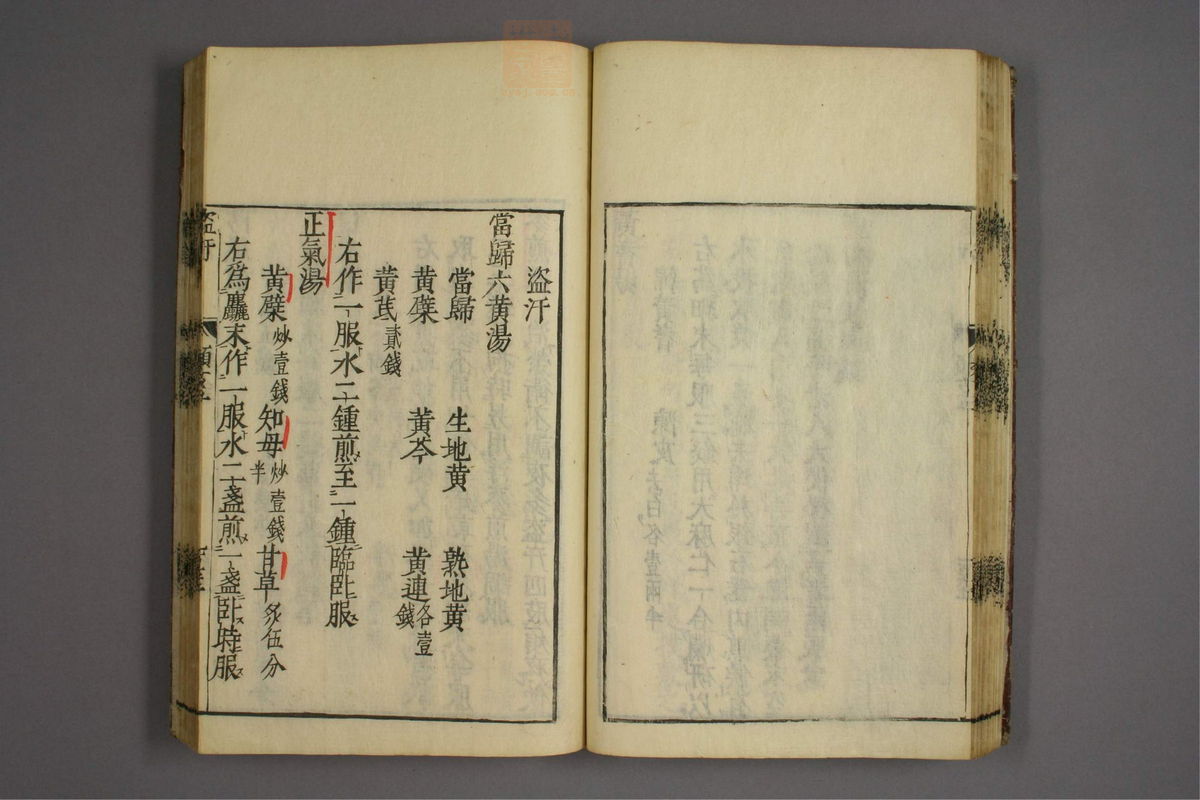 盜汗
當歸六黃湯
當歸 生地黃 熟地黃
黃檗 黃芩 黃連各壹錢
黃芪貳錢
右作一服水二鍾煎至一鍾臨卧服
正氣湯
黃檗炒壹錢 知母炒壹錢半 甘草炙伍分
右為麤末作一服水二盞煎一盞卧時服
盜汗